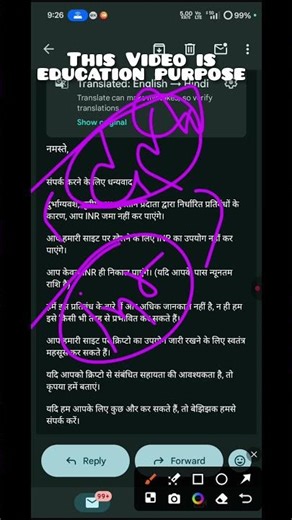 9:26
99%
THIS VIDEO IS
EDUCATION PURPOSE
Translated: English → Hindi
Translate can make mistakes, so verify
translations
Show original
नमस्ते,
संपर्क करने के लिए धन्यवाद
दुर्भाग्यवश, प्रदाता द्वारा निर्धारित प्रतिबंधों के
कारण, आप INR जमा नहीं कर पाएंगे।
आप हमारी साइट पर खेलने के लिए INR का उपयोग नहीं कर
पाएंगे।
आप केवल INR ही निकाल पाएंगे। (यदि आपके पास न्यूनतम
राशि है
हमें इस प्रतिबंध के बारे में और अधिक जानकारी नहीं है, न ही हम
इसे किसी भी तरह से प्रभावित कर सकते हैं।
आप हमारी साइट पर क्रिप्टो का उपयोग जारी रखने के लिए स्वतंत्र
महसूस कर सकते हैं।
यदि आपको क्रिप्टो से संबंधित सहायता की आवश्यकता है, तो
कृपया हमें बताएं।
यदि हम आपके लिए कुछ और कर सकते हैं, तो बेझिझक हमसे
संपर्क करें।
Reply
Forward
99+